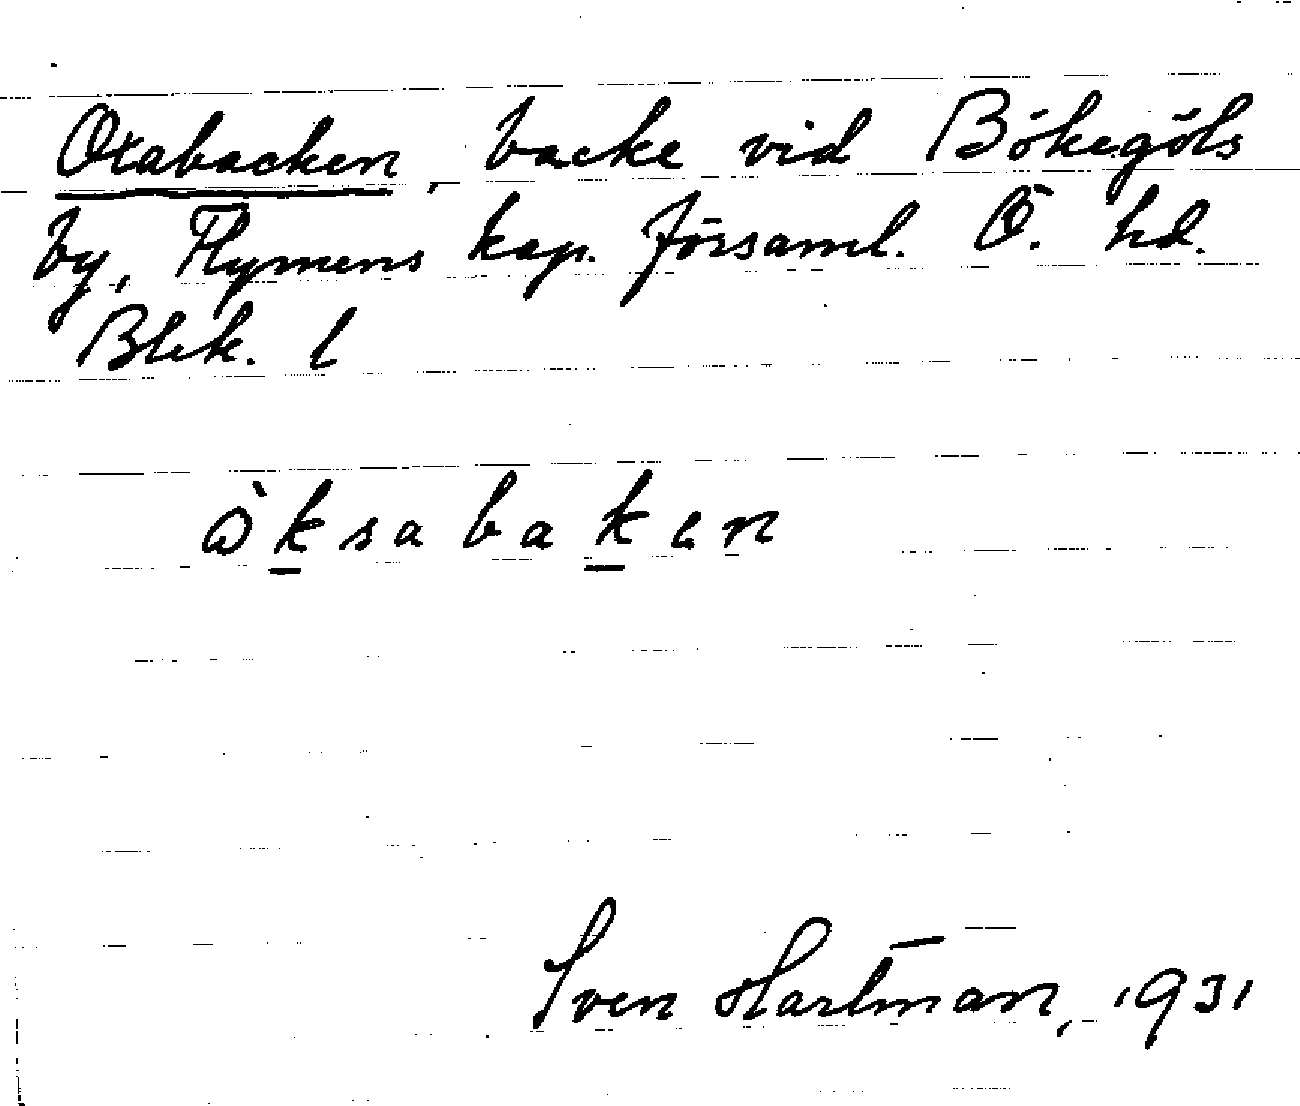 Oxabacken, backe vid Bökegöls
by, Flymens kap. församl. Ö. hd.
Blek. l
òksabaken
Sven Hartman, 1931